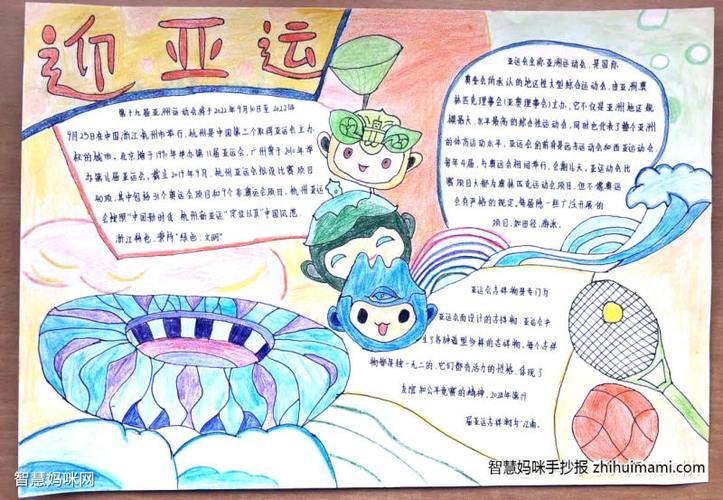 迎亚运
第十九届亚洲运动会将于2022年9月10日至2022年
9月25日在中国浙江杭州市举行,杭州是中国第三个取得亚运会主办
权的城市,北京曾于1990年举办第11届亚运会,广州曾于2010年举
办第16届亚运会。截立2019年9月,杭州亚运会拟设比赛项目
40项,其中包括31个奥运会项目和9个非奥运会项目。杭州亚运
会按照“中国新时代 杭州新亚运”定位以及“中国风范
浙江特色
亚运会全称亚洲运动会,是国际
奥委会所承认的地区性大型综合运动会,由亚洲奥
林匹克理事会(亚奥理事会)主办,它不仅是亚洲地区规
模最大、水平最高的综合性运动会,同时也代表了整个亚洲
的体育运动水平,亚运会的前身是远东运动会和西亚运动会,
每年4届,与奥运会相间举行,会期几天,亚运动会比
赛项目大都为奥林匹克运动会项目,但不像奥运
会有严格的规定,每届随一些广泛开展的
项目,如田径、游泳。
亚运会吉祥物是专门为
亚运会而设计的吉祥物,亚运会产
生了各种造型多样的吉祥物,每个吉祥
物都是独一无二的,它们都有活力的性格,体现了
友谊和公平竞赛的精神,
届亚运吉祥物为“江南。
智慧妈咪网
智慧妈咪手抄报 zhihuimami.com